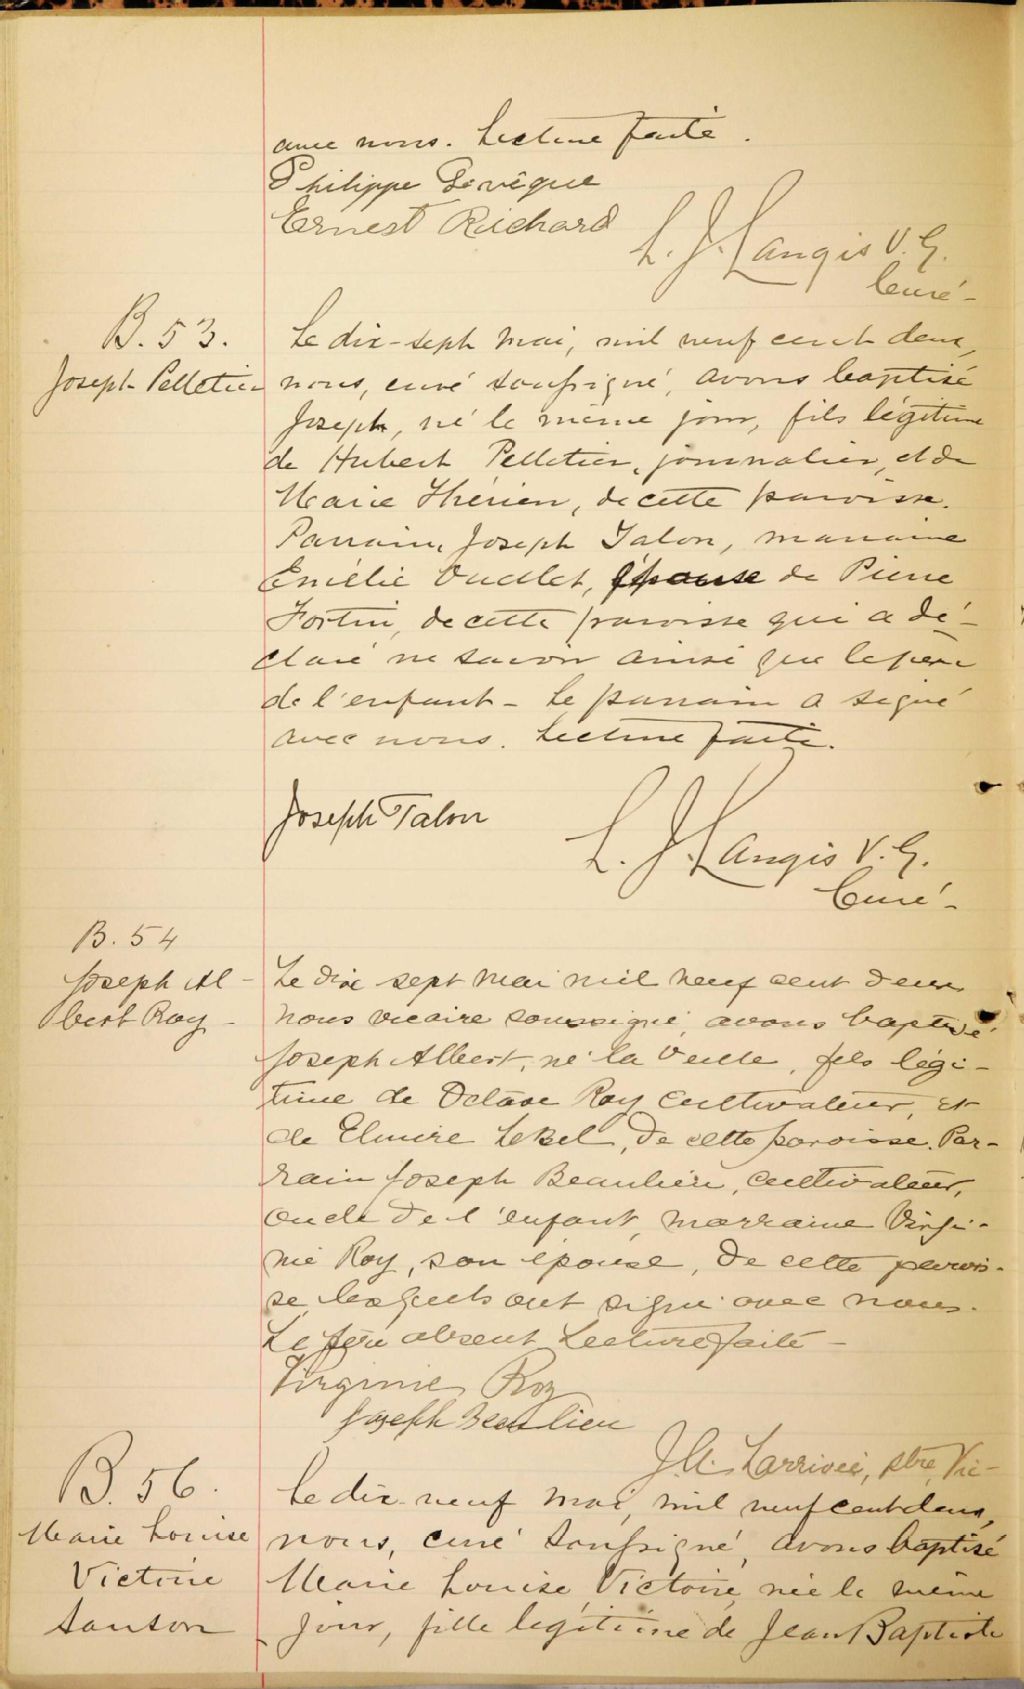 avec nous. Lecture faite.
Philippe Levêque
Ernest Richard
L. J. Langis V. G.
Curé-
B. 53.
Joseph Pelletier
Le dix-sept mai, mil neuf cent deux,
nous, curé soussigné, avons baptisé
Joseph, né le même jour, fils légitime
de Hubert Pelletier, journalier, et de
Marie Thérien, de cette paroisse.
Parrain, Joseph Talon, marraine
Emélie Ouellet, épouse de Pierre
Fortin, de cette paroisse qui a dé-
claré ne savoir ainsi que le père
de l'enfant - Le parrain a signé
avec nous. Lecture faite.
Joseph Talon
L. J. Langis V. G.
Curé-
B. 54
Joseph Al-
bert Roy -
Le dix sept mai mil neuf cent deux
nous vicaire soussigné, avons baptisé
Joseph Albert, né la veille, fils légi-
time de Octave Roy cultivateur, et
de Elmire LeBel, de cette paroisse. Par-
rain Joseph Beaulieu, cultivateur,
oncle de l'enfant, marraine Virgi-
nie Roy, son épouse, de cette parois-
se lesquels ont signé avec nous.
Le père absent Lecture faite -
Virginie Roy
Joseph Beaulieu
J. A. Larrivée, ptre, Vic-
B. 56.
Marie Louise
Victoire
Sanson
Le dix-neuf mai, mil neuf cent deux,
nous, curé soussigné, avons baptisé
Marie Louise Victoire, née le même
jour, fille légitime de Jean Baptiste